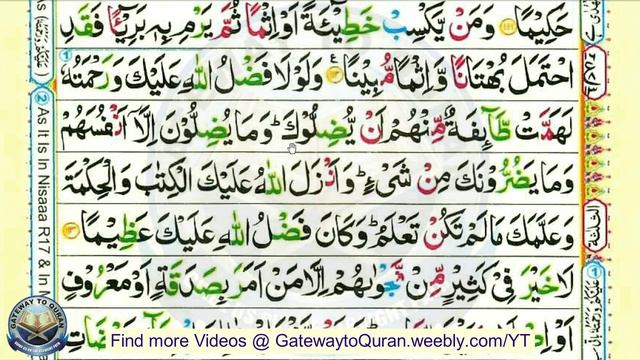 حَكِيمًا ۝ وَمَنْ يَّكْسِبْ خَطِيْٓئَةً اَوْ اِثْمًا ثُمَّ يَرْمِ بِهٖ بَرِيْٓـًٔا فَقَدِ
احْتَمَلَ بُهْتَانًا وَّاِثْمًا مُّبِيْنًا ۝ وَلَوْلَا فَضْلُ اللّٰهِ عَلَيْكَ وَرَحْمَتُهٗ
لَهَمَّتْ طَّآئِفَةٌ مِّنْهُمْ اَنْ يُّضِلُّوْكَ ؕ وَمَا يُضِلُّوْنَ اِلَّاۤ اَنْفُسَهُمْ
وَمَا يَضُرُّوْنَكَ مِنْ شَيْءٍ ؕ وَاَنْزَلَ اللّٰهُ عَلَيْكَ الْكِتٰبَ وَالْحِكْمَةَ
وَعَلَّمَكَ مَا لَمْ تَكُنْ تَعْلَمُ ؕ وَكَانَ فَضْلُ اللّٰهِ عَلَيْكَ عَظِيْمًا ۝
لَا خَيْرَ فِيْ كَثِيْرٍ مِّنْ نَّجْوٰىهُمْ اِلَّا مَنْ اَمَرَ بِصَدَقَةٍ اَوْ مَعْرُوْفٍ
② As It Is In Nisaaa R17 & In
GATEWAY TO QURAN
Find more Videos @ GatewaytoQuran.weebly.com/YT